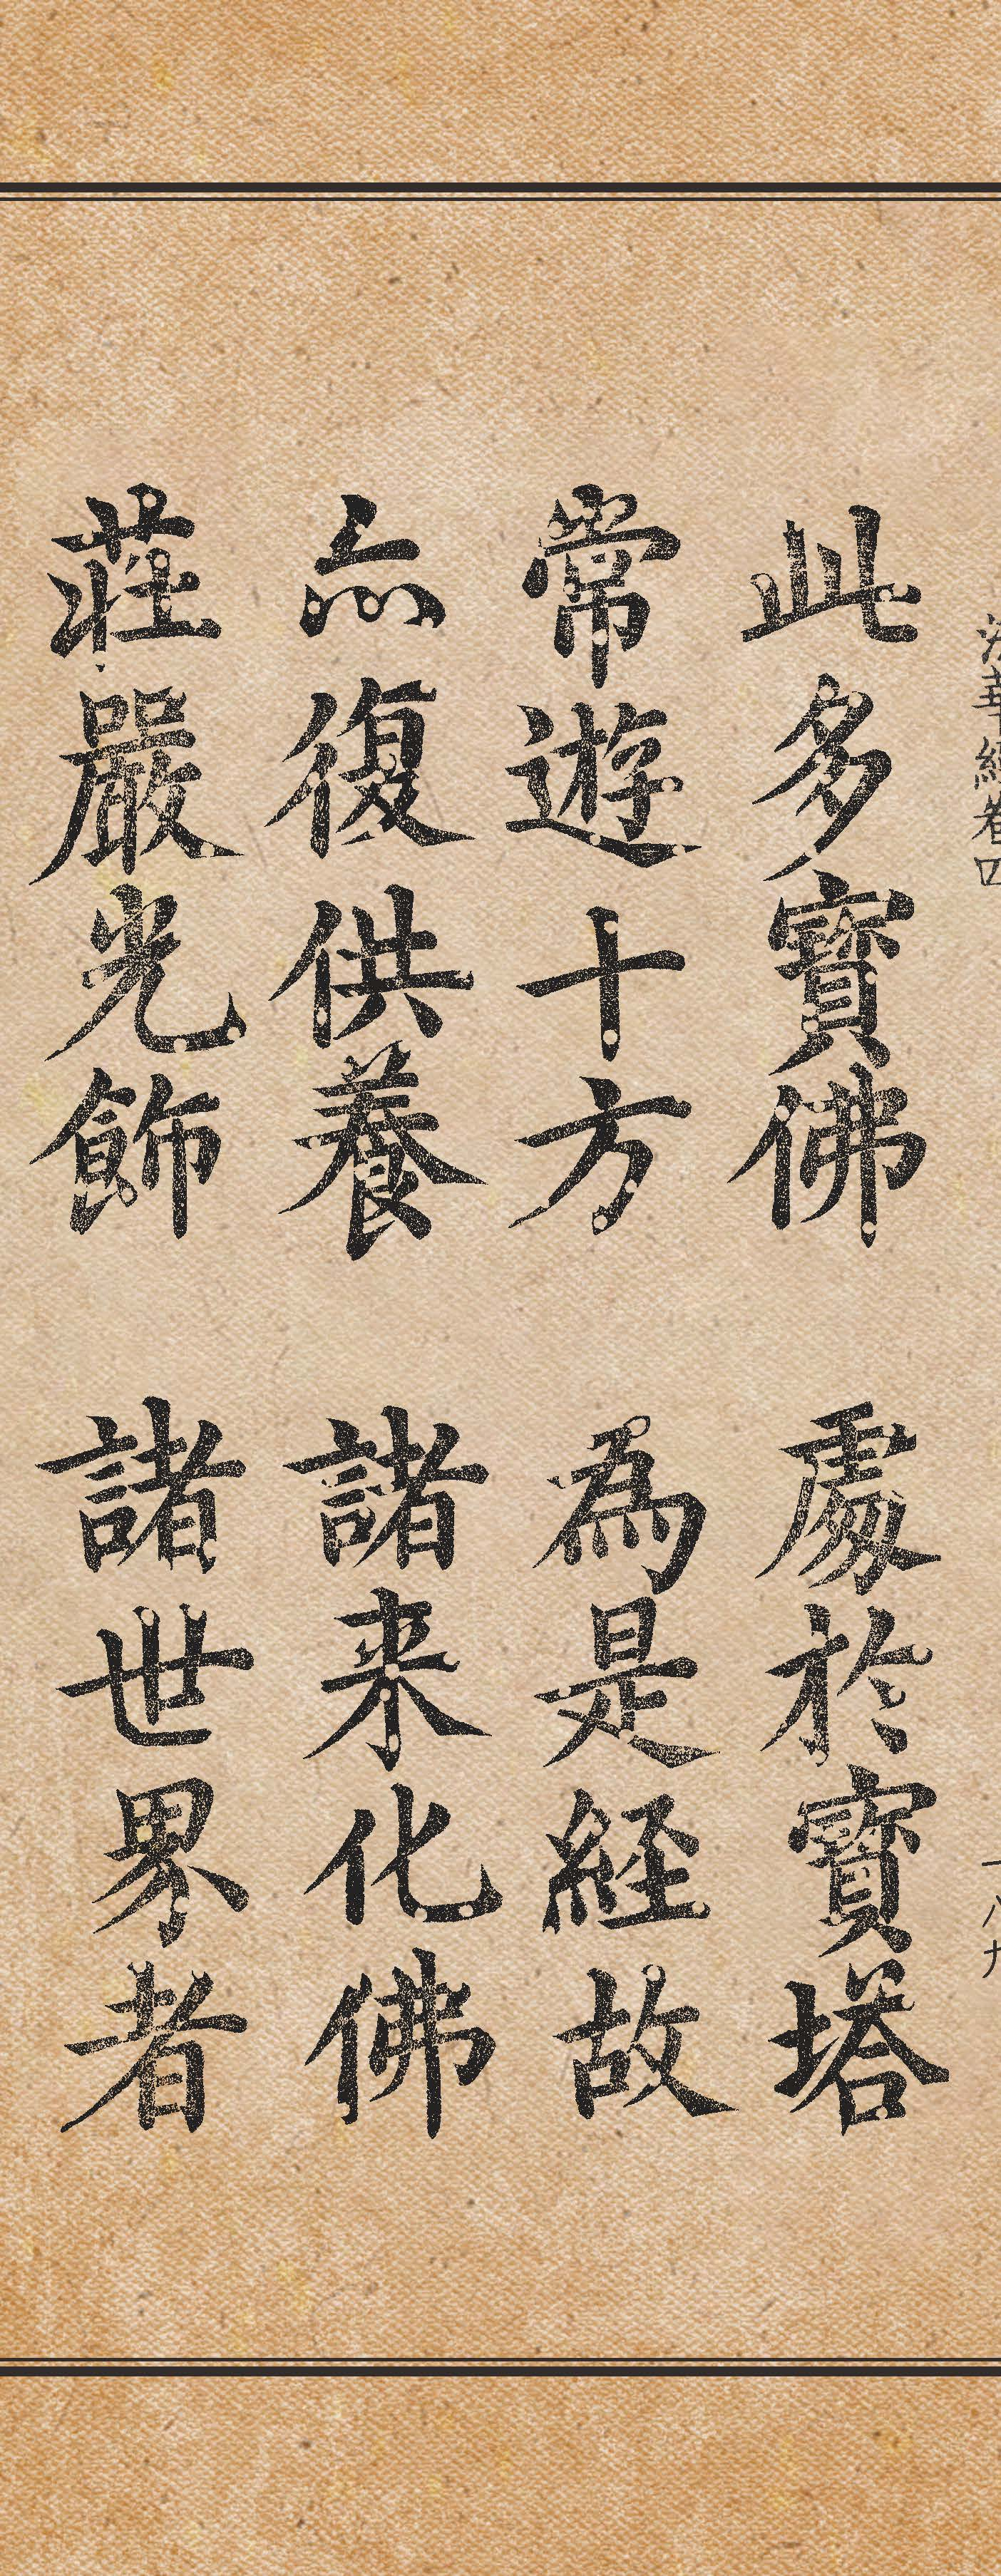 法華經卷四
一八九
此多寶佛 處於寶塔
常遊十方 為是経故
亦復供養 諸来化佛
莊嚴光飾 諸世界者